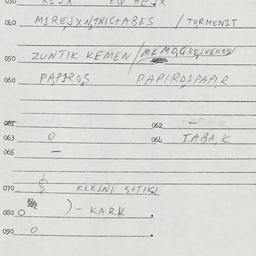 040 MIREJXN,TNICTABES / TORMENIT
050 ZUNTIK KEMEN /
060 PAPIROS PAPIROSPAPIR
061 062 —
063 O 064 TABAK
065 —
070 $ KLEJNI STIKL
080 O ) - KARK
090 O